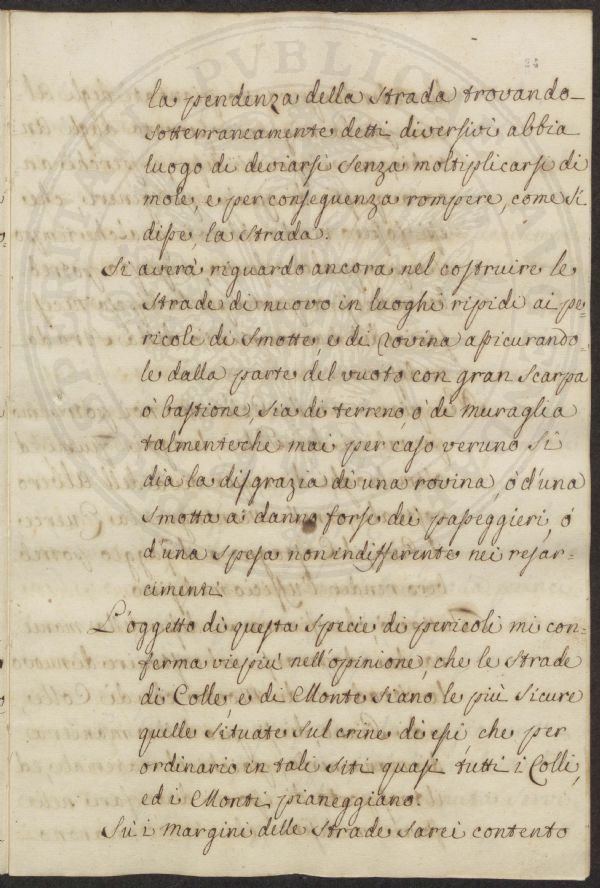 24
la pendenza della strada trovando
sotterraneamente detti diversivi abbia
luogo di deviarsi senza moltiplicarsi di
mole, e per conseguenza rompere, come si
disse, la strada.
Si averà riguardo ancora nel costruire le
strade di nuovo in luoghi ripidi ai pe=
ricoli di smotte, e di rovina assicurando=
le dalla parte del vuoto con gran scarpa
ò bastione, sia di terreno, ò de muraglia
talmenteche mai per caso veruno si
dia la disgrazia di una rovina, ò d'una
smotta a danno forse dei passeggieri, ó
d'una spesa non indifferente nei resar=
cimenti.
L'oggetto di questa specie di pericoli mi con=
ferma viepiù nell'opinione, che le strade
di Colle, e di Monte siano le più sicure
quelle situate sul crine di essi, che per
ordinario in tali siti quasi tutti i Colli,
ed i Monti pianeggiano.
Su i margini delle strade sarei contento